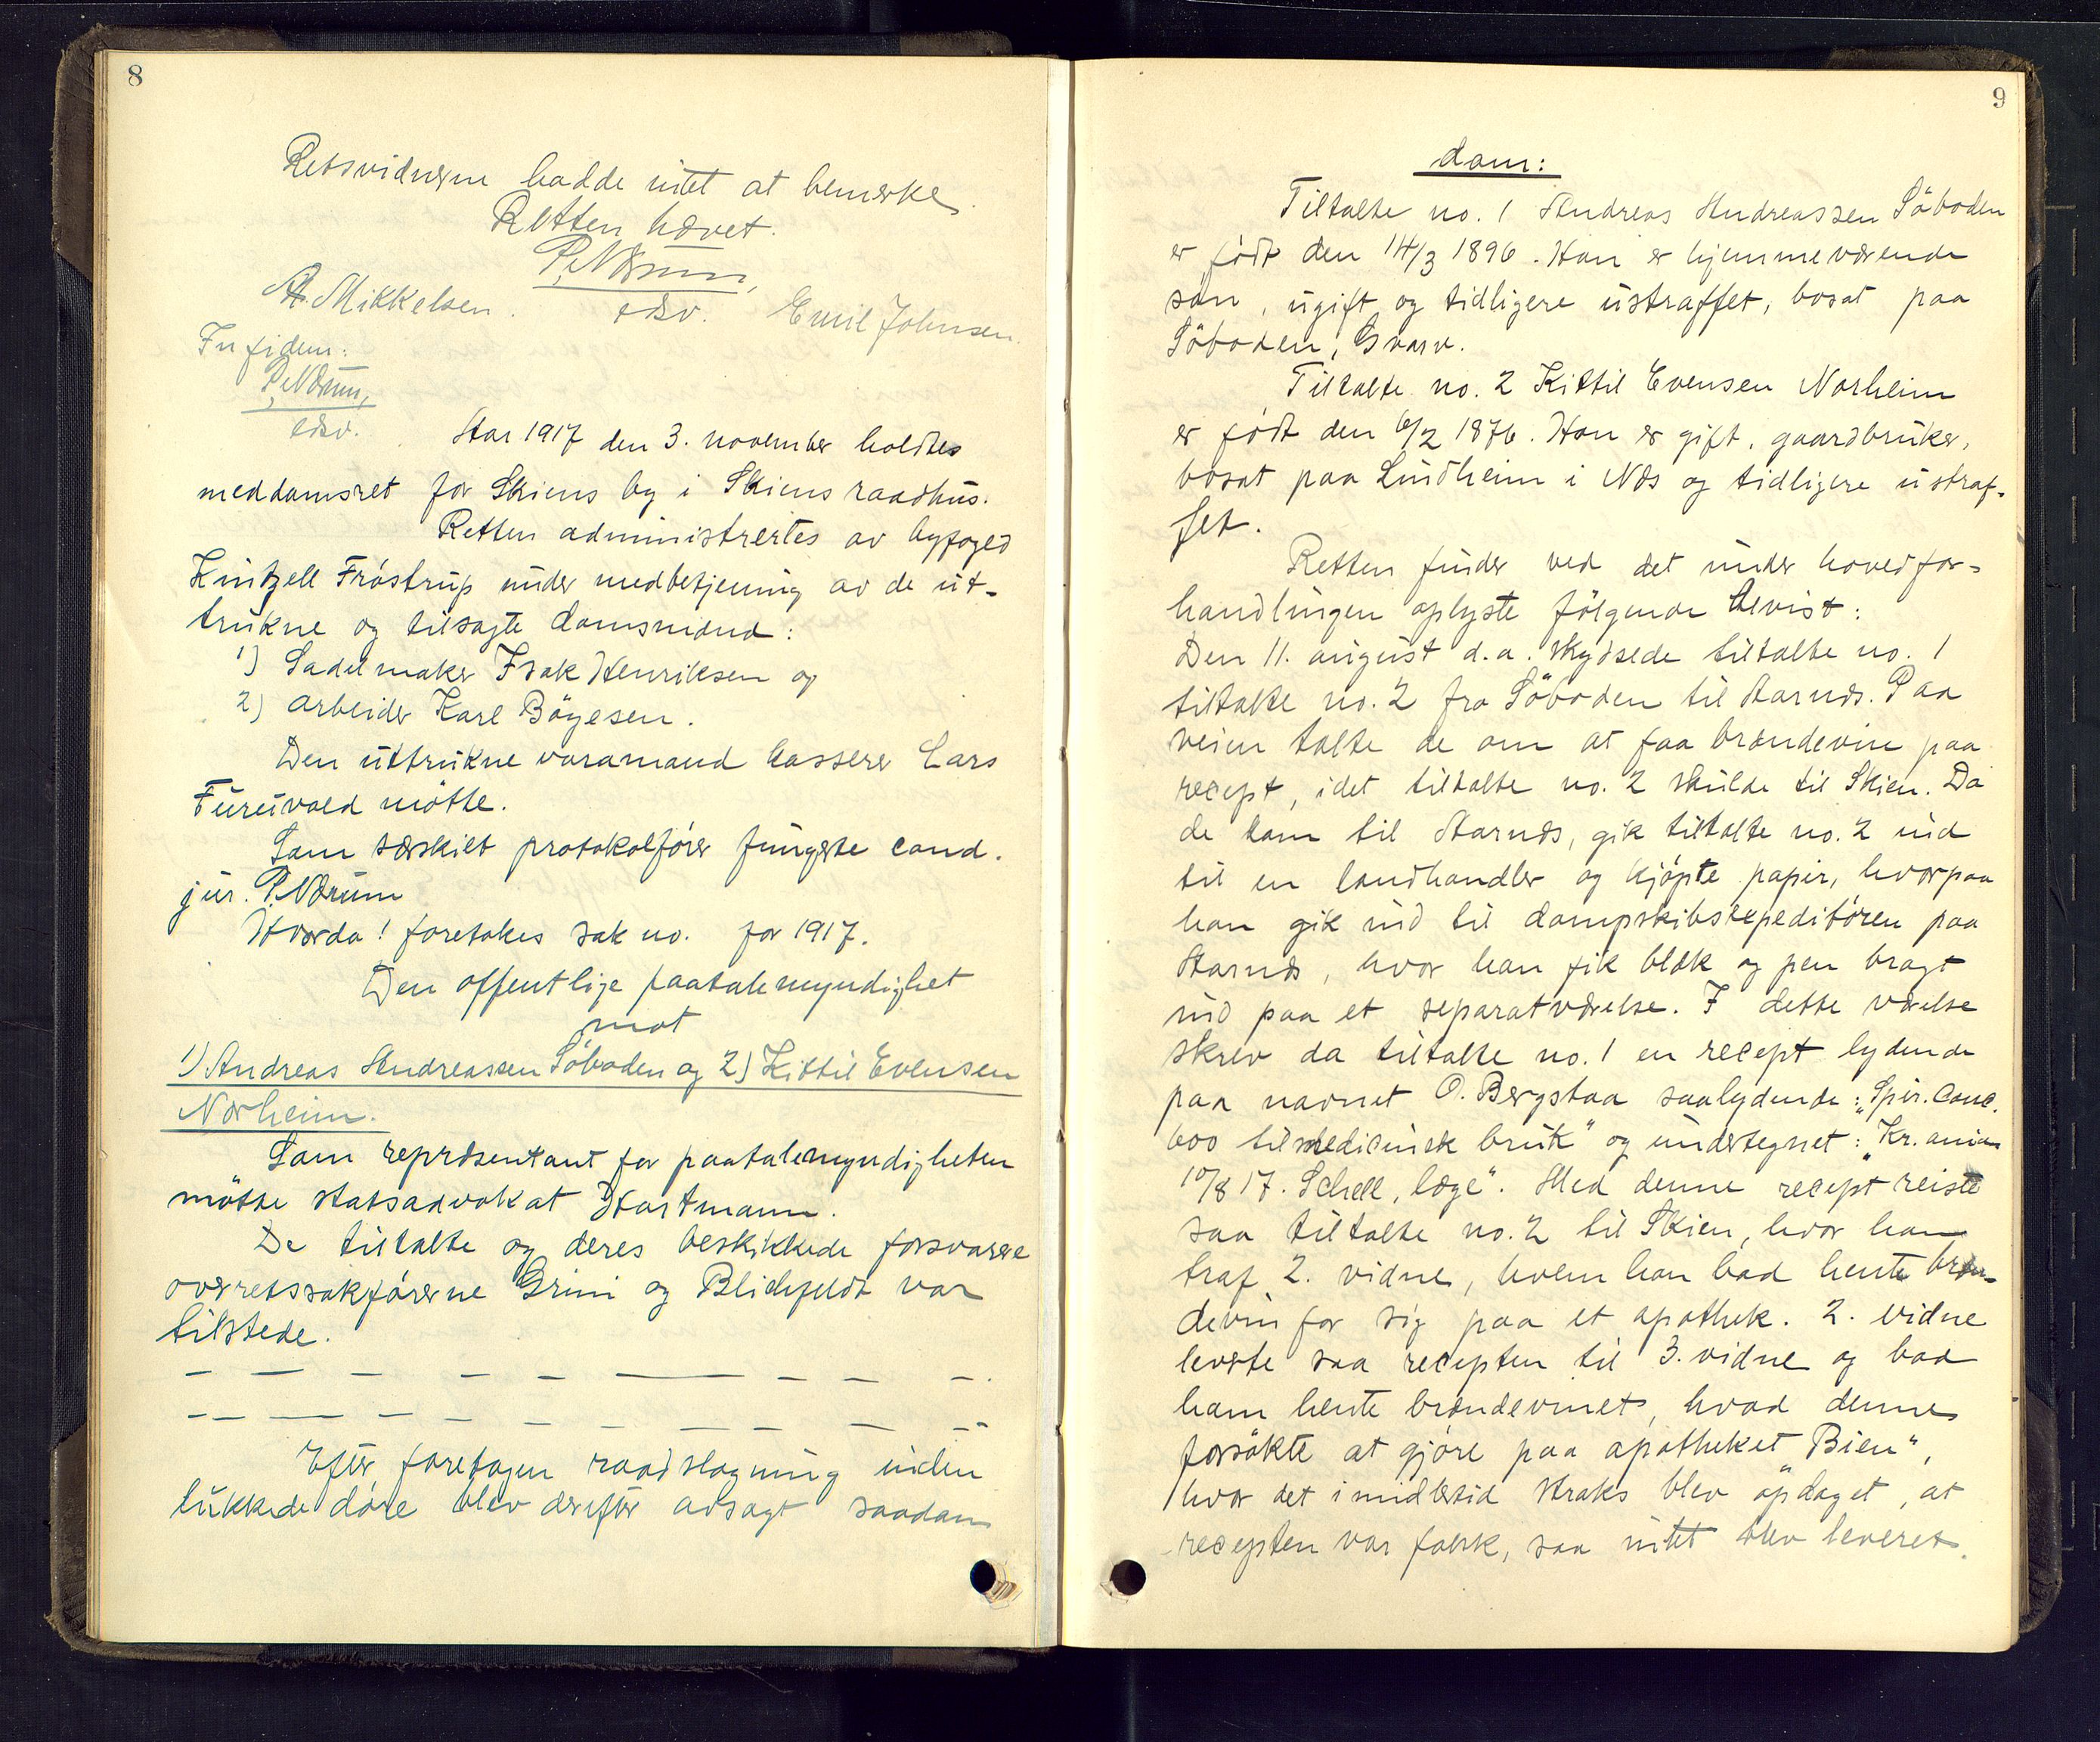 8
Retsvidnerne hadde intet at bemerke.
Retten hævet.
P. Nærum,
edsv.
A. Mikkelsen. Emil Johnsen.
In fidem:
P. Nærum,
edsv.
Aar 1917 den 3. november holdtes
meddomsret for Skiens by i Skiens raadhus.
Retten administrertes av byfoged
Kintzell Fröstrup under medbetjening av de ut-
trukne og tilsagte domsmænd:
1) Sadelmaker Isak Henriksen og
2) arbeider Karl Bögesen.
Den uttrukne varamand kasserer Lars
Furuvald mötte.
Som særskilt protokolförer fungerte cand.
jur. P. Nærum
Hvorda! foretokes sak no. for 1917.
Den offentlige paatalemyndighet
mot
1) Andreas Andreassen Söboden og 2) Kittil Evensen
Norheim.
Som repræsentant for paatalemyndigheten
mötte statsadvokat Hartmann.
De tiltalte og deres beskikkede forsvarere
overretssakförerne Grini og Blichfeldt var
tilstede.
— — — — — — — — — —.
— — — — — — — — — —
Efter foretagen raadslagning inden
lukkede döre blev derefter avsagt saadan
9
dom:
Tiltalte no. 1 Andreas Andreassen Söboden
er födt den 14/3 1896. Han er hjemmeværende
sön, ugift og tidligere ustraffet, bosat paa
Söboden, Gvarv.
Tiltalte no. 2 Kittil Evensen Norheim
er födt den 6/2 1876. Han er gift, gaardbruker,
bosat paa Lindheim i Næs og tidligere ustraf-
fet.
Retten finder ved det under hovedfor-
handlingen oplyste fölgende bevist:
Den 11. august d.a. skydsede tiltalte no. 1
tiltalte no. 2 fra Söboden til Aarnæs. Paa
veien talte de om at faa brændevin paa
recept, idet tiltalte no. 2 skulde til Skien. Da
de kom til Aarnæs, gik tiltalte no. 2 ind
til en landhandler og kjöpte papir, hvorpaa
han gik ind til dampskibsexpeditören paa
Aarnæs, hvor han fik blæk og pen bragt
ind paa et separatværelse. I dette værelse
skrev da tiltalte no. 1 en recept lydende
paa navnet O. Bergstaa saalydende: „Spir. conc.
600 til medicinsk bruk" og undertegnet: „Kr.ania
10/8 17. Schell, læge". Med denne recept reiste
saa tiltalte no. 2 til Skien, hvor han
traf 2. vidne, hvem han bad hente bræn-
devin for sig paa et apothek. 2. vidne
leverte saa recepten til 3. vidne og bad
ham hente brændevinet, hvad denne
forsökte at gjöre paa apotheket „Bien",
hvor det imidlertid straks blev opdaget, at
recepten var falsk, saa intet blev leveret.